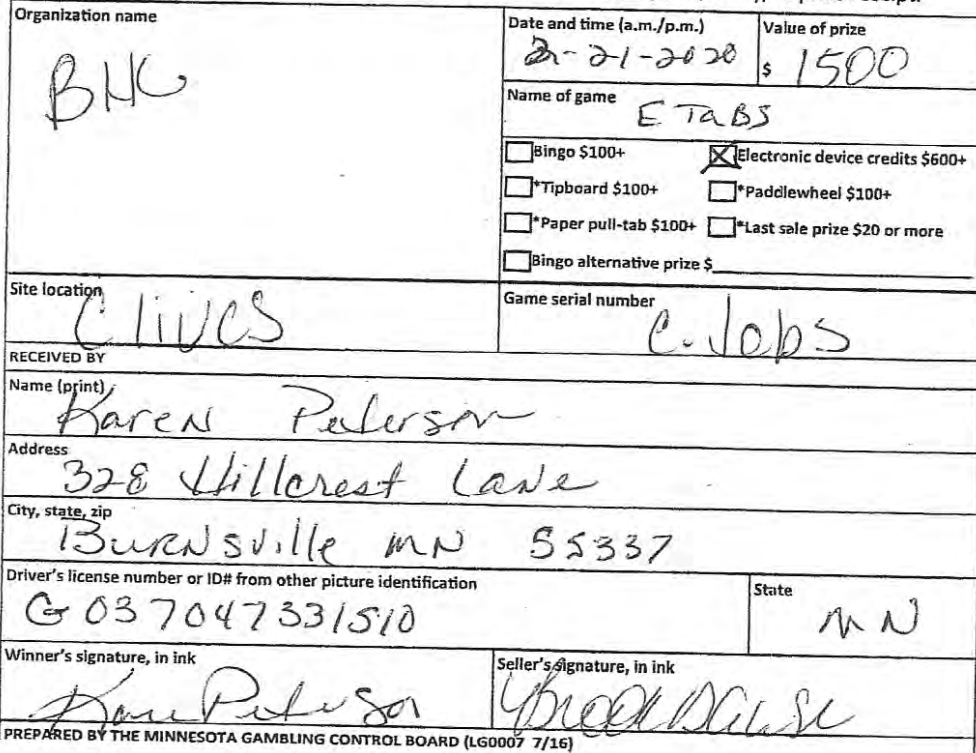 Organization name
BHC
Date and time (a.m./p.m.)
2-21-2020
Value of prize
$ 1500
Name of game
E TaBS
Bingo $100+
Electronic device credits $600+
*Tipboard $100+
*Paddlewheel $100+
*Paper pull-tab $100+
*Last sale prize $20 or more
Bingo alternative prize $
Site location
Clives
Game serial number
RECEIVED BY
Name (print)
Karen Peterson
Address
328 Hillcrest Lane
City, state, zip
BURNSville MN 55337
Driver's license number or ID# from other picture identification
G037047331510
State
MN
Winner's signature, in ink
Karen Peterson
Seller's signature, in ink
PREPARED BY THE MINNESOTA GAMBLING CONTROL BOARD (LG0007 7/16)